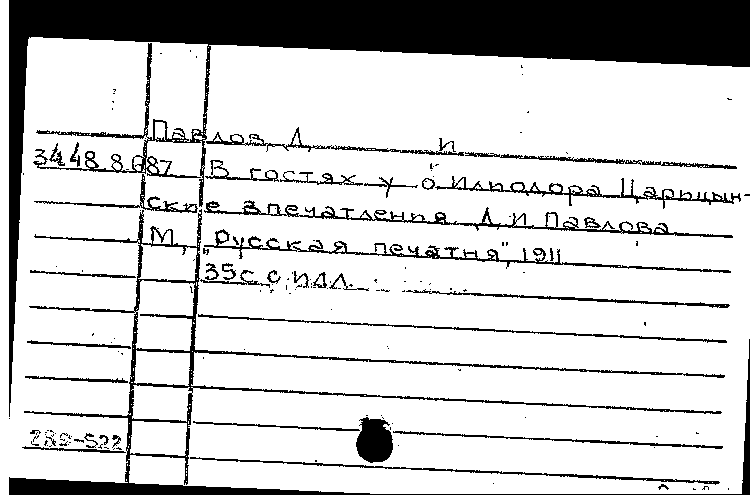 Павлов, Д И
3448.8.087 В гостях у о. Илиодора Царицын-
ские впечатления Д. И Павлова
М, "Русская печатня", 1911
35с с илл.
289-522